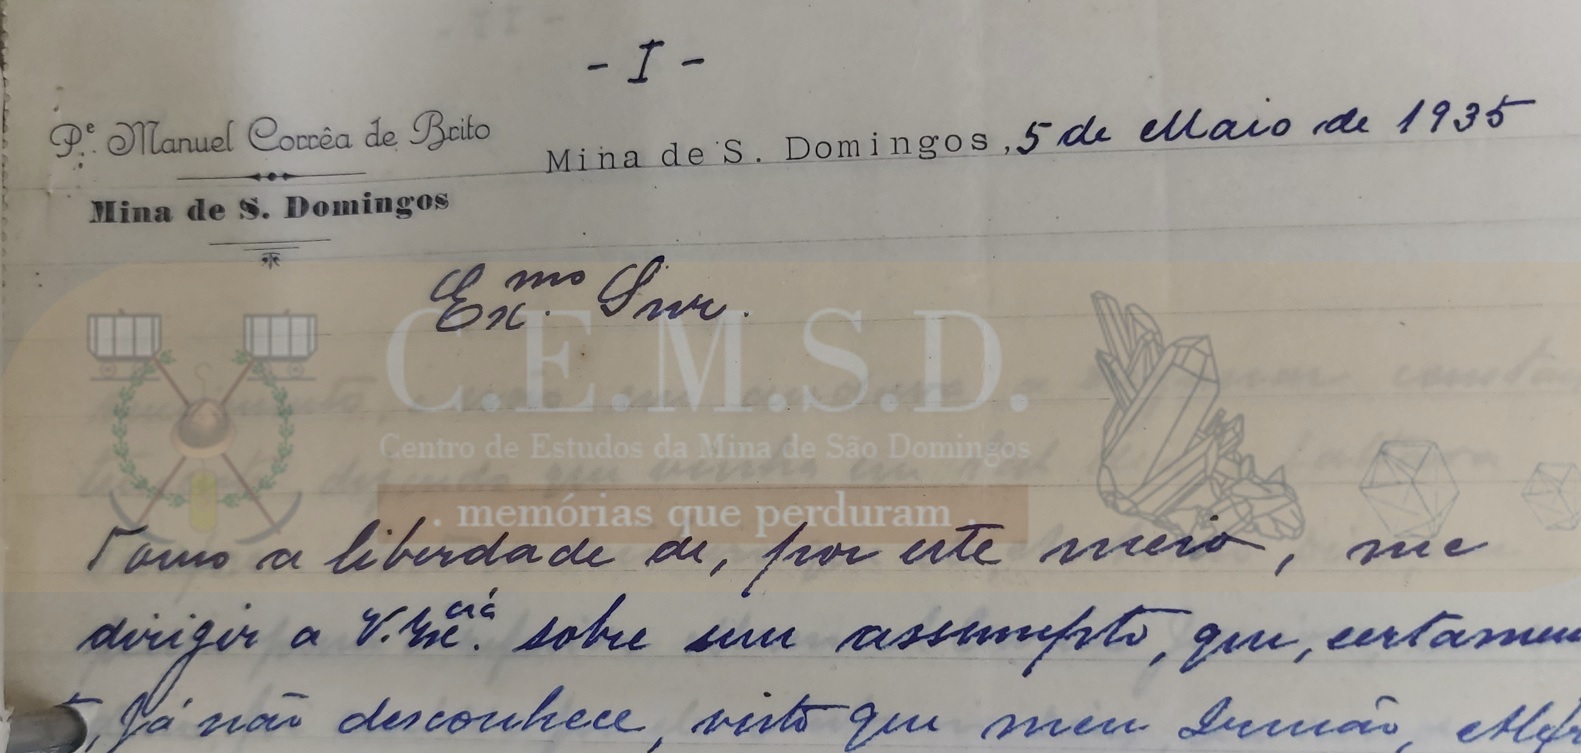 - I -
P.e Manuel Corrêa de Brito
Mina de S. Domingos, 5 de Maio de 1935
Mina de S. Domingos
Ex.mo Snr.
C.E.M.S.D.
Centro de Estudos da Mina de São Domingos
. memórias que perduram .
Tomo a liberdade de, por este meio, me
dirigir a V. Exciá. sobre um assumpto, que, certamen
te, já não desconhece, visto que meu Irmão,